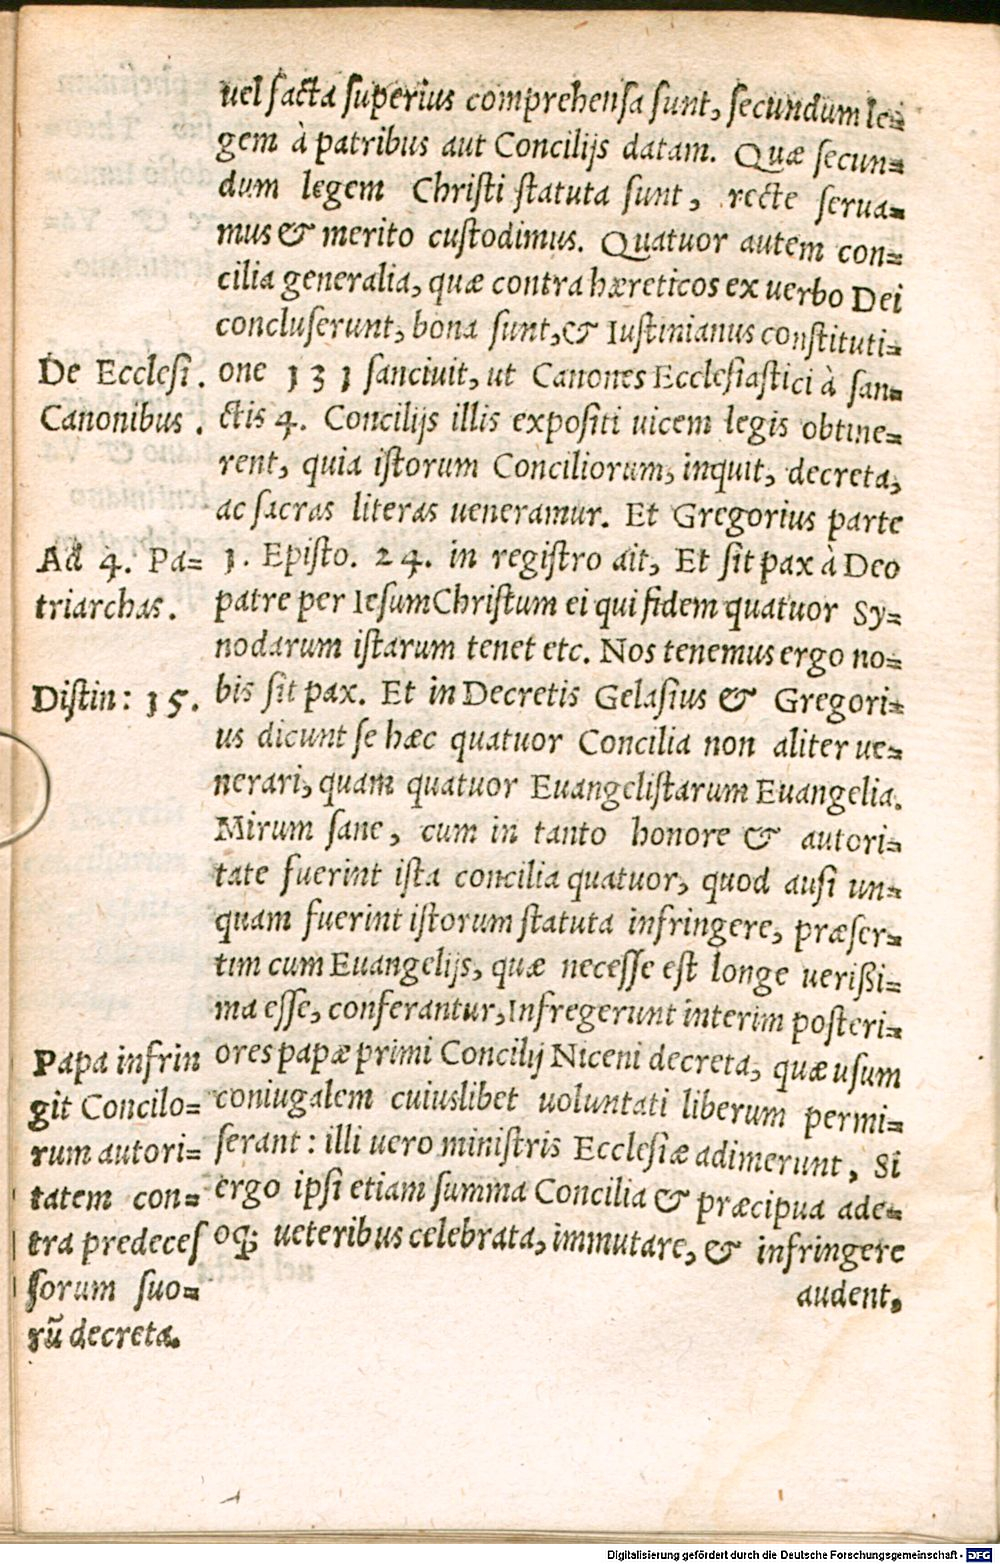 uel facta superius comprehensa sunt, secundum le-
gem à patribus aut Concilijs datam. Quæ secun-
dum legem Christi statuta sunt, recte serua-
mus & merito custodimus. Quatuor autem con-
cilia generalia, quæ contra hæreticos ex uerbo Dei
concluserunt, bona sunt, & Iustinianus constituti-
De Ecclesi.
Canonibus.
one 131 sanciuit, ut Canones Ecclesiastici à san-
ctis 4. Concilijs illis expositi uicem legis obtine-
rent, quia istorum Conciliorum, inquit, decreta,
ac sacras literas ueneramur. Et Gregorius parte
Ad 4. Pa-
triarchas.
1. Episto. 24. in registro ait, Et sit pax à Deo
patre per Iesum Christum ei qui fidem quatuor Sy-
nodarum istarum tenet etc. Nos tenemus ergo no-
Distin: 15.
bis sit pax. Et in Decretis Gelasius & Gregori-
us dicunt se hæc quatuor Concilia non aliter ue-
nerari, quam quatuor Euangelistarum Euangelia.
Mirum sane, cum in tanto honore & autori-
tate fuerint ista concilia quatuor, quod ausi un-
quam fuerint istorum statuta infringere, præser-
tim cum Euangelijs, quæ necesse est longe uerißi-
ma esse, conferantur, Infregerunt interim posteri-
Papa infrin
git Concilo-
rum autori-
tatem con-
tra predeces
sorum suo-
rũ decreta.
ores papæ primi Concilij Niceni decreta, quæ usum
coniugalem cuiuslibet uoluntati liberum permi-
serant: illi uero ministris Ecclesiæ adimerunt, Si
ergo ipsi etiam summa Concilia & præcipua ade-
oq; ueteribus celebrata, immutare, & infringere
audent,
Digitalisierung gefördert durch die Deutsche Forschungsgemeinschaft - DFG